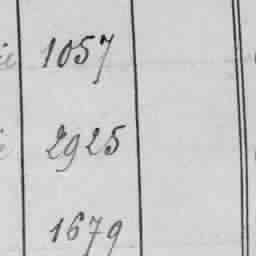 1057
2925
1679